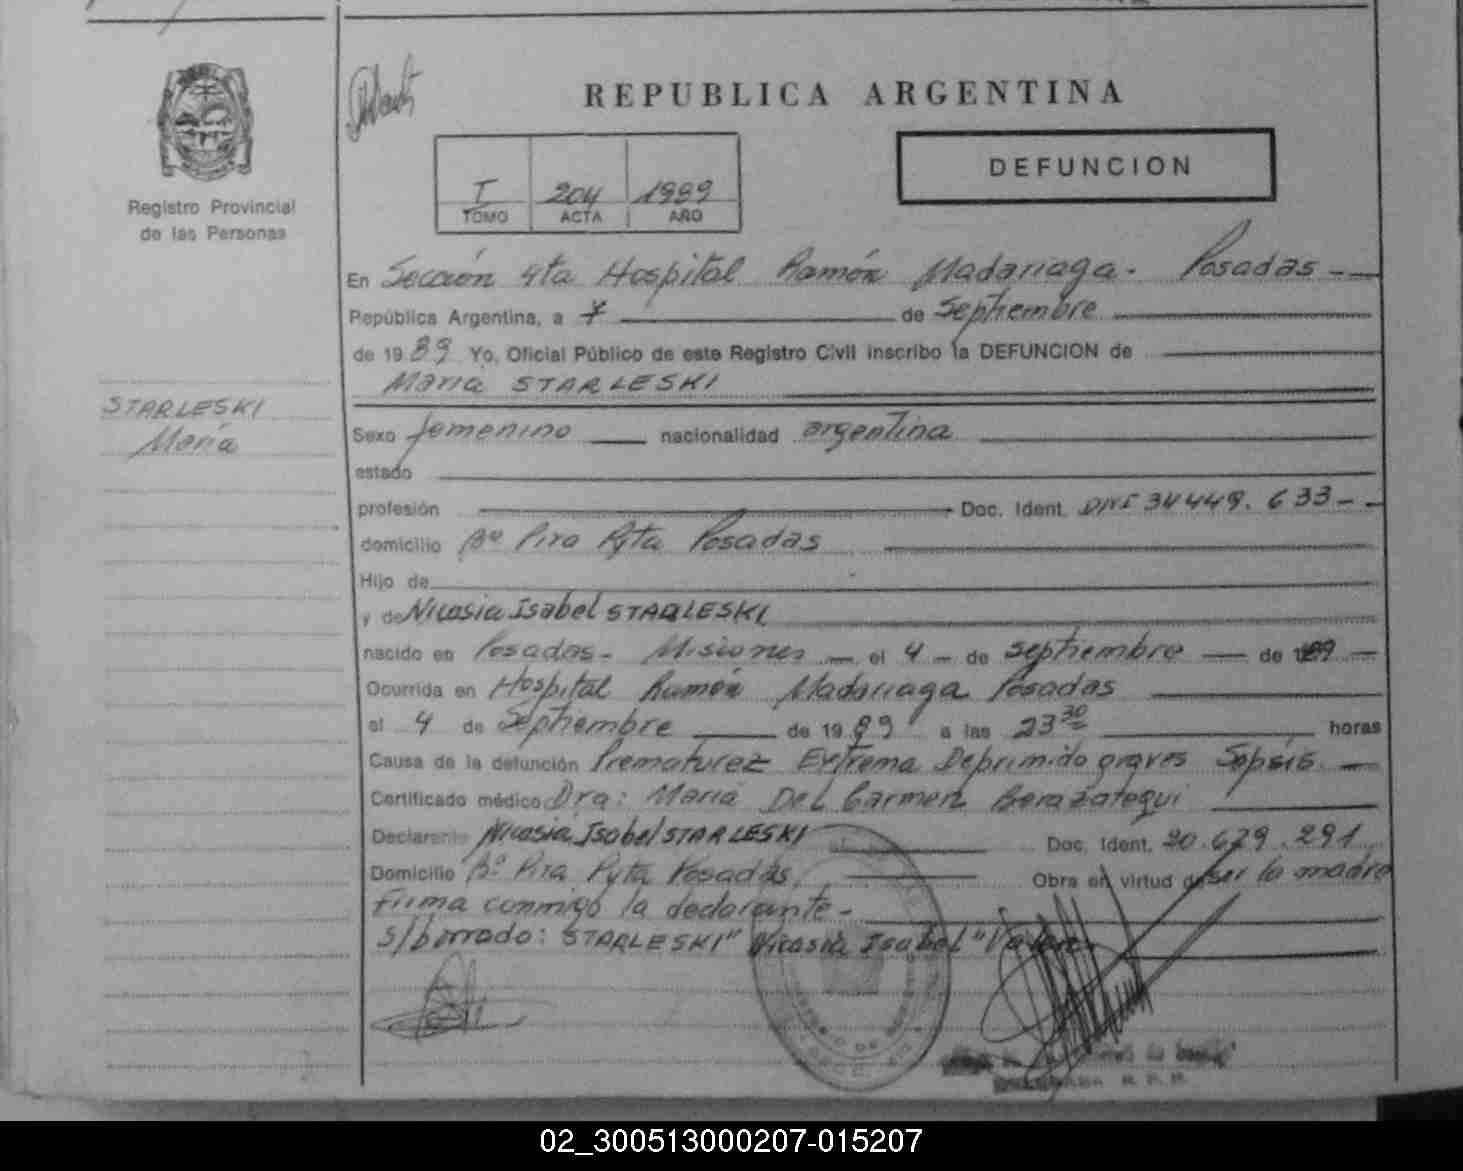 REPUBLICA ARGENTINA
DEFUNCION
Registro Provincial
de las Personas
I 204 1989
TOMO ACTA AÑO
En Sección 4ta Hospital Ramón Madariaga. Posadas
República Argentina, a 7 de Septiembre
de 1989 Yo, Oficial Público de este Registro Civil inscribo la DEFUNCION de
María STARLESKI
STARLESKI
María
Sexo femenino nacionalidad argentina
estado
profesión Doc. Ident. DNI 34449.633
domicilio Bº Pira Pyta Posadas
Hijo de
y de Nicasia Isabel STARLESKI
nacido en Posadas - Misiones el 4 de septiembre de 1989
Ocurrida en Hospital Ramón Madariaga Posadas
el 4 de Septiembre de 1989 a las 23 30 horas
Causa de la defunción Prematurez Extrema Deprimido graves Sepsis
Certificado médico Dra: María Del Carmen Berazategui
Declarante Nicasia Isabel STARLESKI Doc. Ident. 20.629.291
Domicilio Bº Pira Pyta Posadas Obra en virtud de ser la madre
firma conmigo la declarante -
s/borrado: STARLESKI" Nicasia Isabel "Valen
02_300513000207-015207